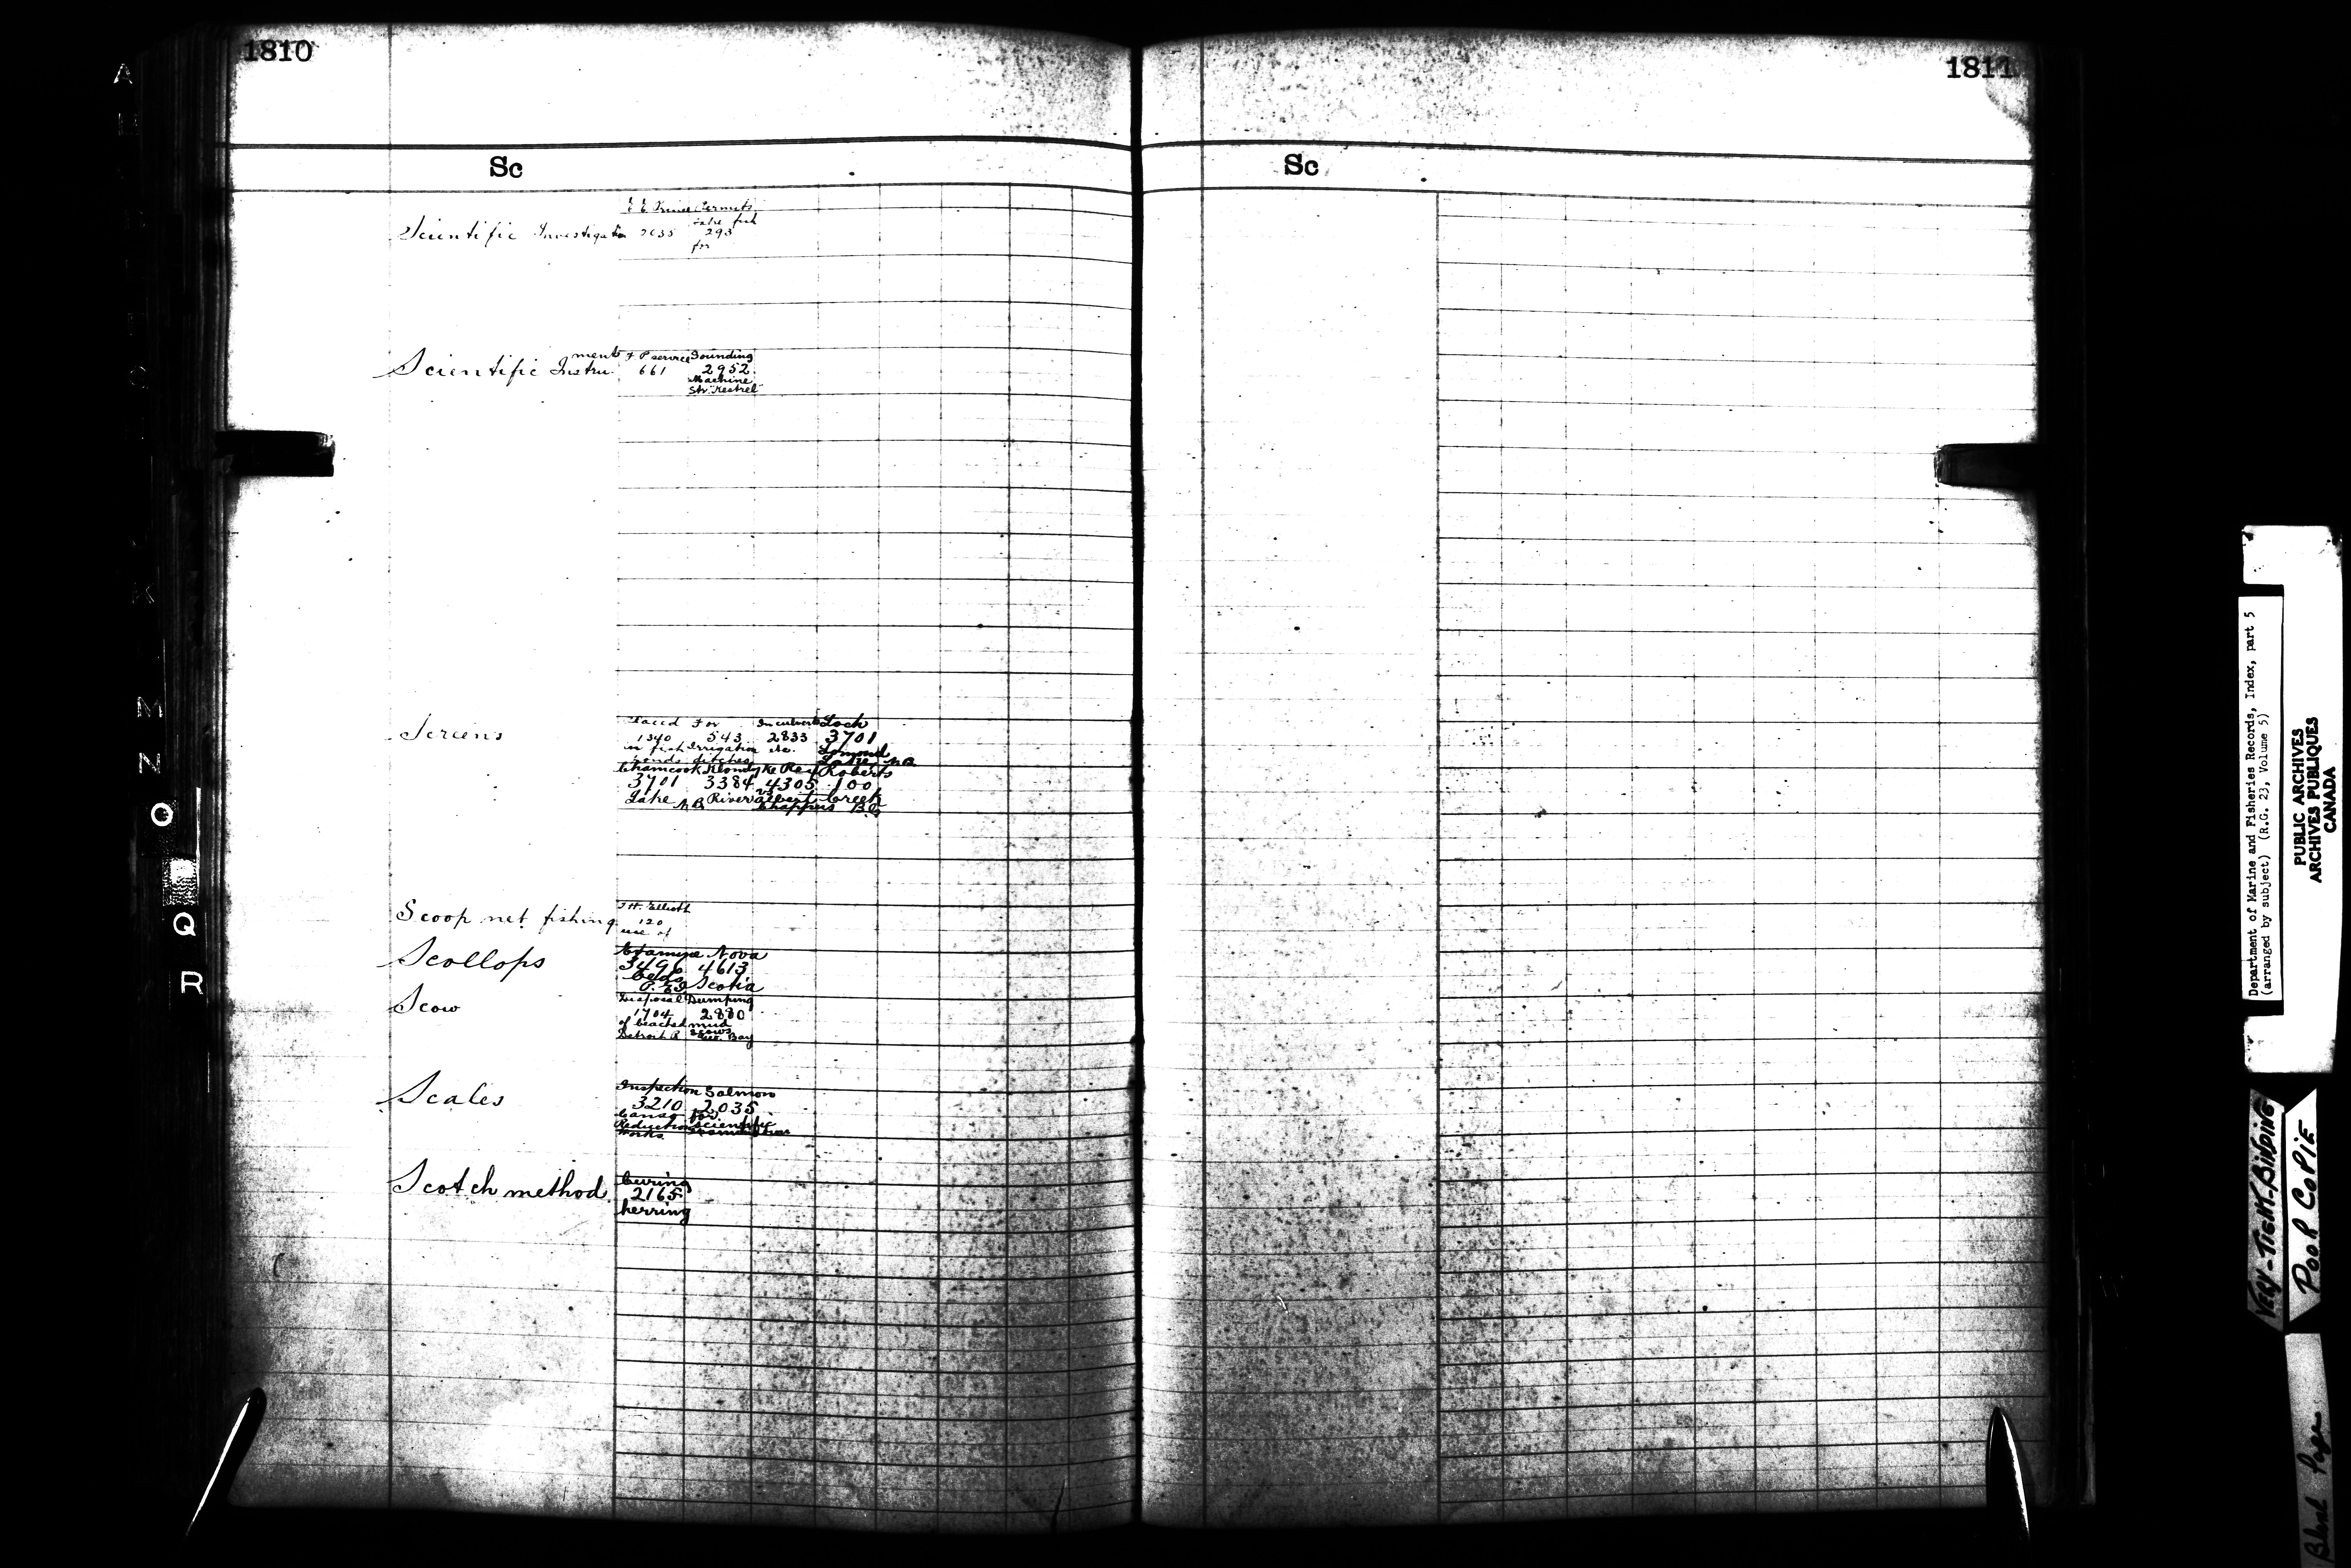 1810
Sc
Scientific Investigation E E Prince 2035
Permits take fish 293 for
Scientific Instrument F P service 661
Sounding 2952 Machine Str "Kestrel"
Screens Placed 1340 in fish ponds
For 543 Irrigation ditches
In culverts 2833 etc.
Loch 3701 Lomond Lake N.B.
Chamcook 3701 Lake N.B.
Klondyke 3384 River
4305 Albert
Roberts 100 Creek B.C.
Scoop net fishing 120 use of
Scollops 3496 Beds P.E.I
Nova 4613 Scotia
Scow Disposal 1704 of Detroit R
Dumping 2880 mud scows Geo. Bay
Scales Inspection 3210 Canso Reduction Works
Salmon 2035 for scientific examination
Scotch method Curing 2165 herring
1811
Sc
A
M
N
O
Q
R
Department of Marine and Fisheries Records, Index, part 5
(arranged by subject) (R.G. 23, Volume 5)
PUBLIC ARCHIVES
ARCHIVES PUBLIQUES
CANADA
VERY-TIGHT-BINDING
POOR COPIE
Blank Page